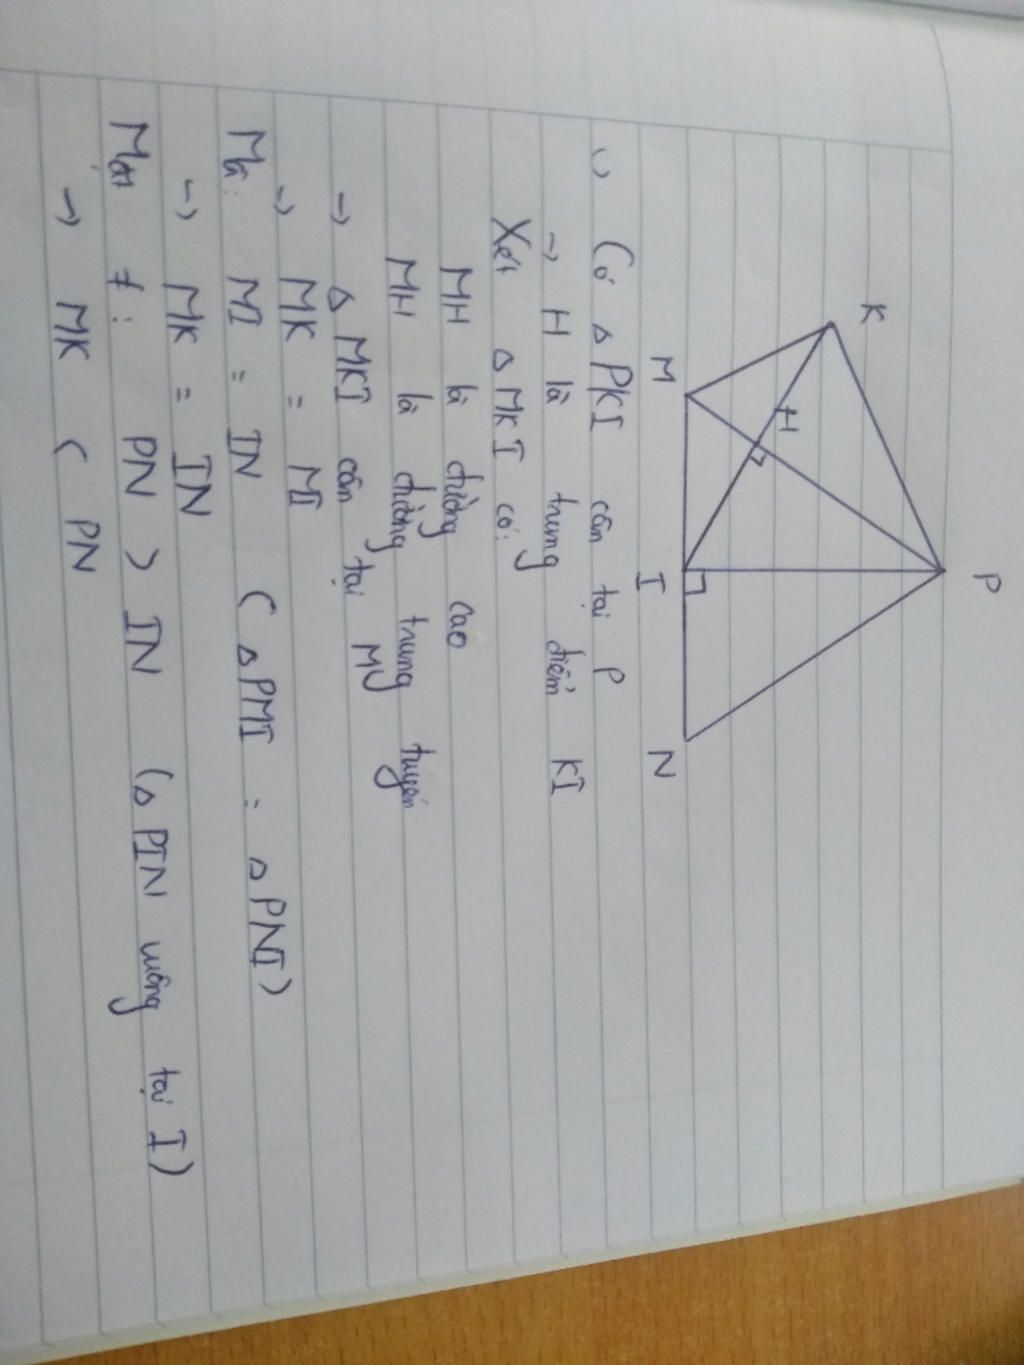 K
P
H
M
I
N
c) Có △ PKI cân tại P
→ H là trung điểm KI
Xét △ MKI có:
MH là đường cao
MH là đường trung tuyến
→ △ MKI cân tại M
→ MK = MI
Mà: MI = IN (△PMI = △PNI)
→ MK = IN
Mặt ≠: PN > IN (△ PIN vuông tại I)
→ MK < PN